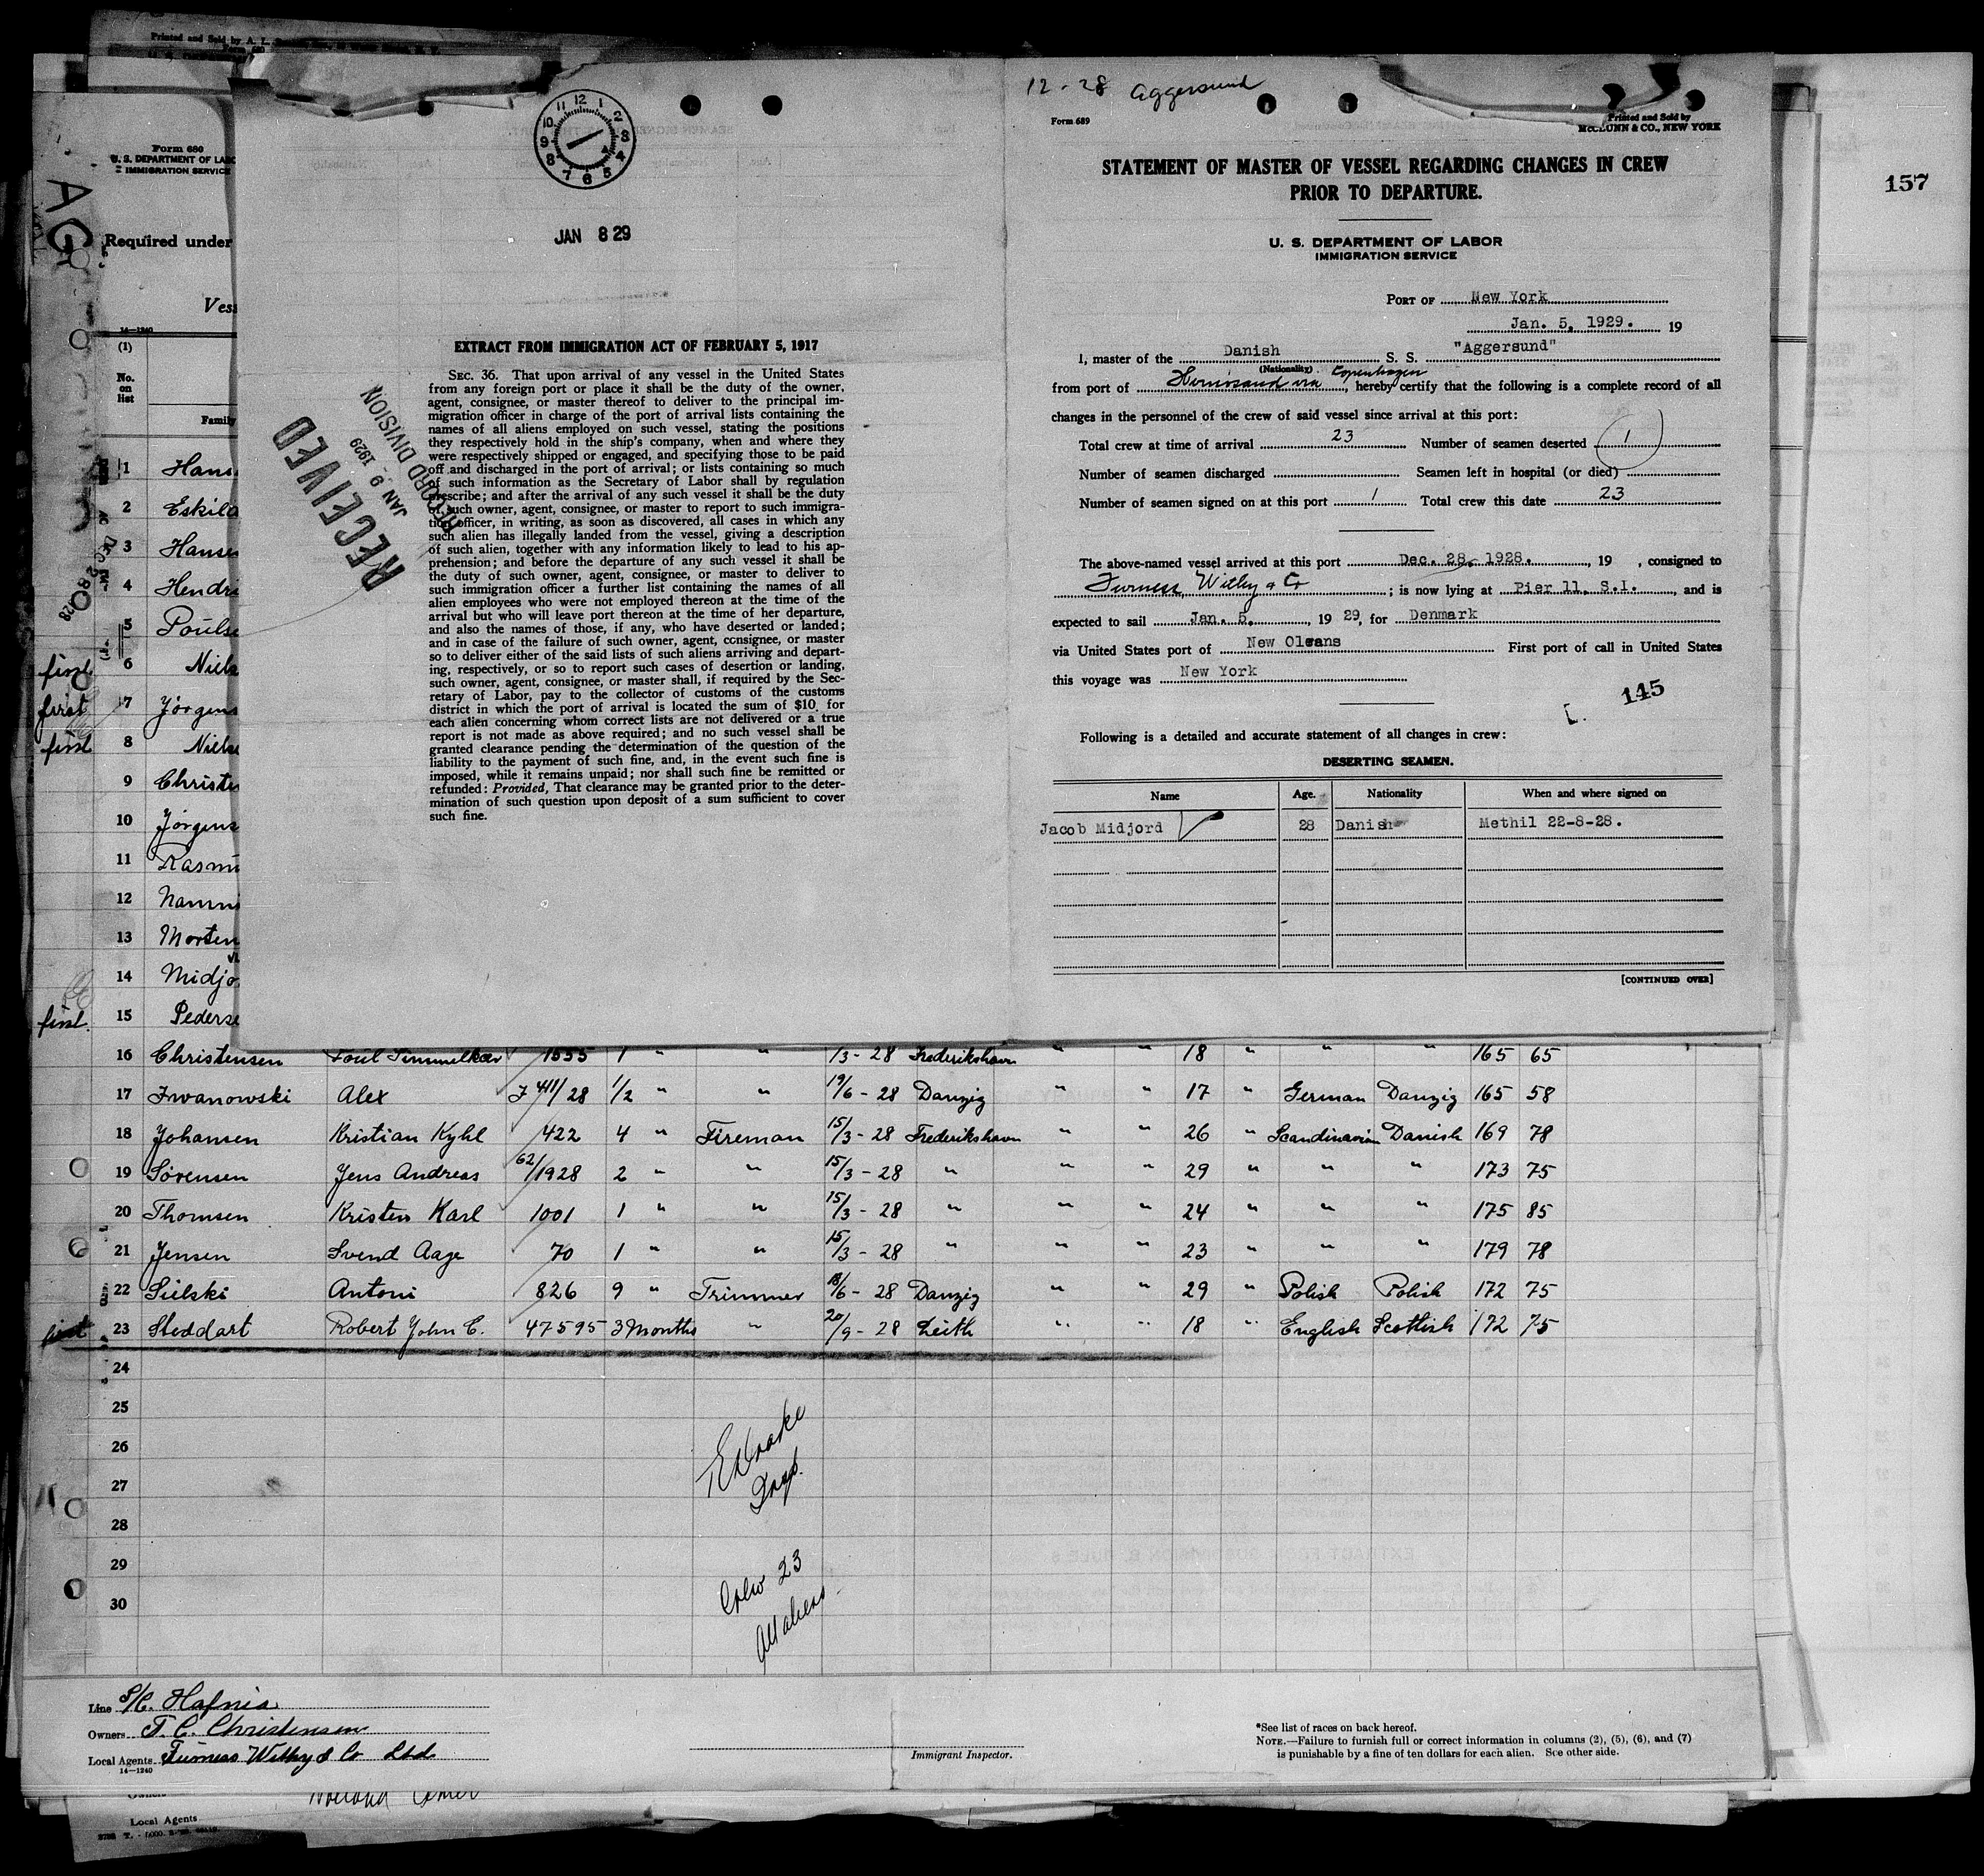 Printed and Sold by A. L.
157
Form 680
U. S. DEPARTMENT OF LABO
IMMIGRATION SERVICE
Required under
Vess
14—1240
(1)
No.
on
list
Family
12 1 2 3 4 5 6 7 8 9 10 11
JAN 8 29
EXTRACT FROM IMMIGRATION ACT OF FEBRUARY 5, 1917
SEC. 36. That upon arrival of any vessel in the United States
from any foreign port or place it shall be the duty of the owner,
agent, consignee, or master thereof to deliver to the principal im-
migration officer in charge of the port of arrival lists containing the
names of all aliens employed on such vessel, stating the positions
they respectively hold in the ship's company, when and where they
were respectively shipped or engaged, and specifying those to be paid
off and discharged in the port of arrival; or lists containing so much
of such information as the Secretary of Labor shall by regulation
prescribe; and after the arrival of any such vessel it shall be the duty
of such owner, agent, consignee, or master to report to such immigra-
tion officer, in writing, as soon as discovered, all cases in which any
such alien has illegally landed from the vessel, giving a description
of such alien, together with any information likely to lead to his ap-
prehension; and before the departure of any such vessel it shall be
the duty of such owner, agent, consignee, or master to deliver to
such immigration officer a further list containing the names of all
alien employees who were not employed thereon at the time of the
arrival but who will leave port thereon at the time of her departure,
and also the names of those, if any, who have deserted or landed;
and in case of the failure of such owner, agent, consignee, or master
so to deliver either of the said lists of such aliens arriving and depart-
ing, respectively, or so to report such cases of desertion or landing,
such owner, agent, consignee, or master shall, if required by the Sec-
retary of Labor, pay to the collector of customs of the customs
district in which the port of arrival is located the sum of $10 for
each alien concerning whom correct lists are not delivered or a true
report is not made as above required; and no such vessel shall be
granted clearance pending the determination of the question of the
liability to the payment of such fine, and, in the event such fine is
imposed, while it remains unpaid; nor shall such fine be remitted or
refunded: Provided, That clearance may be granted prior to the deter-
mination of such question upon deposit of a sum sufficient to cover
such fine.
RECEIVED
JAN 9 - 1929
RECORD DIVISION
12 - 28 Aggersund
Form 689
Printed and Sold by
McCLUNN & CO., NEW YORK
STATEMENT OF MASTER OF VESSEL REGARDING CHANGES IN CREW
PRIOR TO DEPARTURE.
U. S. DEPARTMENT OF LABOR
IMMIGRATION SERVICE
PORT OF New York
Jan. 5, 1929. 19
I, master of the Danish S. S. "Aggersund"
(Nationality)
from port of via Copenhagen, hereby certify that the following is a complete record of all
changes in the personnel of the crew of said vessel since arrival at this port:
Total crew at time of arrival 23 Number of seamen deserted 1
Number of seamen discharged Seamen left in hospital (or died)
Number of seamen signed on at this port 1 Total crew this date 23
The above-named vessel arrived at this port Dec. 28, 1928. , 19 , consigned to
Furness Withy & Co ; is now lying at Pier 11, S.I. , and is
expected to sail Jan. 5, , 19 29, for Denmark
via United States port of New Oleans First port of call in United States
this voyage was New York
145
Following is a detailed and accurate statement of all changes in crew:
DESERTING SEAMEN.
Name Age. Nationality When and where signed on
Jacob Midjord 28 Danish Methil 22-8-28.
[CONTINUED OVER]
1 Hans
2 Eskild
3 Hansen
4 Hendri
5 Poulse
first 6 Niels
first 7 Jörgens
first 8 Niels
9 Christe
10 Jörgens
11 Rasmu
12 Nammi
13 Morten
14 Midjo
first. 15 Pederse
16 Christensen Poul Simmelkær 1555 1 " " 1/3 - 28 Frederikshavn " " 18 " " " 165 65
17 Iwanowski Alex J 411/28 1/2 " " 19/6 - 28 Danzig " " 17 " German Danzig 165 58
18 Johansen Kristian Kyhl 422 4 " Fireman 15/3 - 28 Frederikshavn " " 26 " Scandinavian Danish 169 78
19 Sörensen Jens Andreas 62/1928 2 " " 15/3 - 28 " " " 29 " " " 173 75
20 Thomsen Kristen Karl 1001 1 " " 15/3 - 28 " " " 24 " " " 175 85
21 Jensen Svend Aage 70 1 " " 15/3 - 28 " " " 23 " " " 179 78
22 Sielski Antoni 826 9 " Trimmer 18/6 - 28 Danzig " " 29 " Polish Polish 172 75
first 23 Steddart Robert John C. 47595 3 Months " 20/9 - 28 Leith " " 18 " English Scottish 172 75
24
25
26
27
28
29
30
Insp.
Crew 23
All aliens
Line S/C. Hafnia
Owners T. C. Christensen
Local Agents Furness Withy & Co Ltd.
14—1240
Immigrant Inspector.
*See list of races on back hereof.
NOTE.—Failure to furnish full or correct information in columns (2), (5), (6), and (7)
is punishable by a fine of ten dollars for each alien. See other side.
Owners
Local Agents